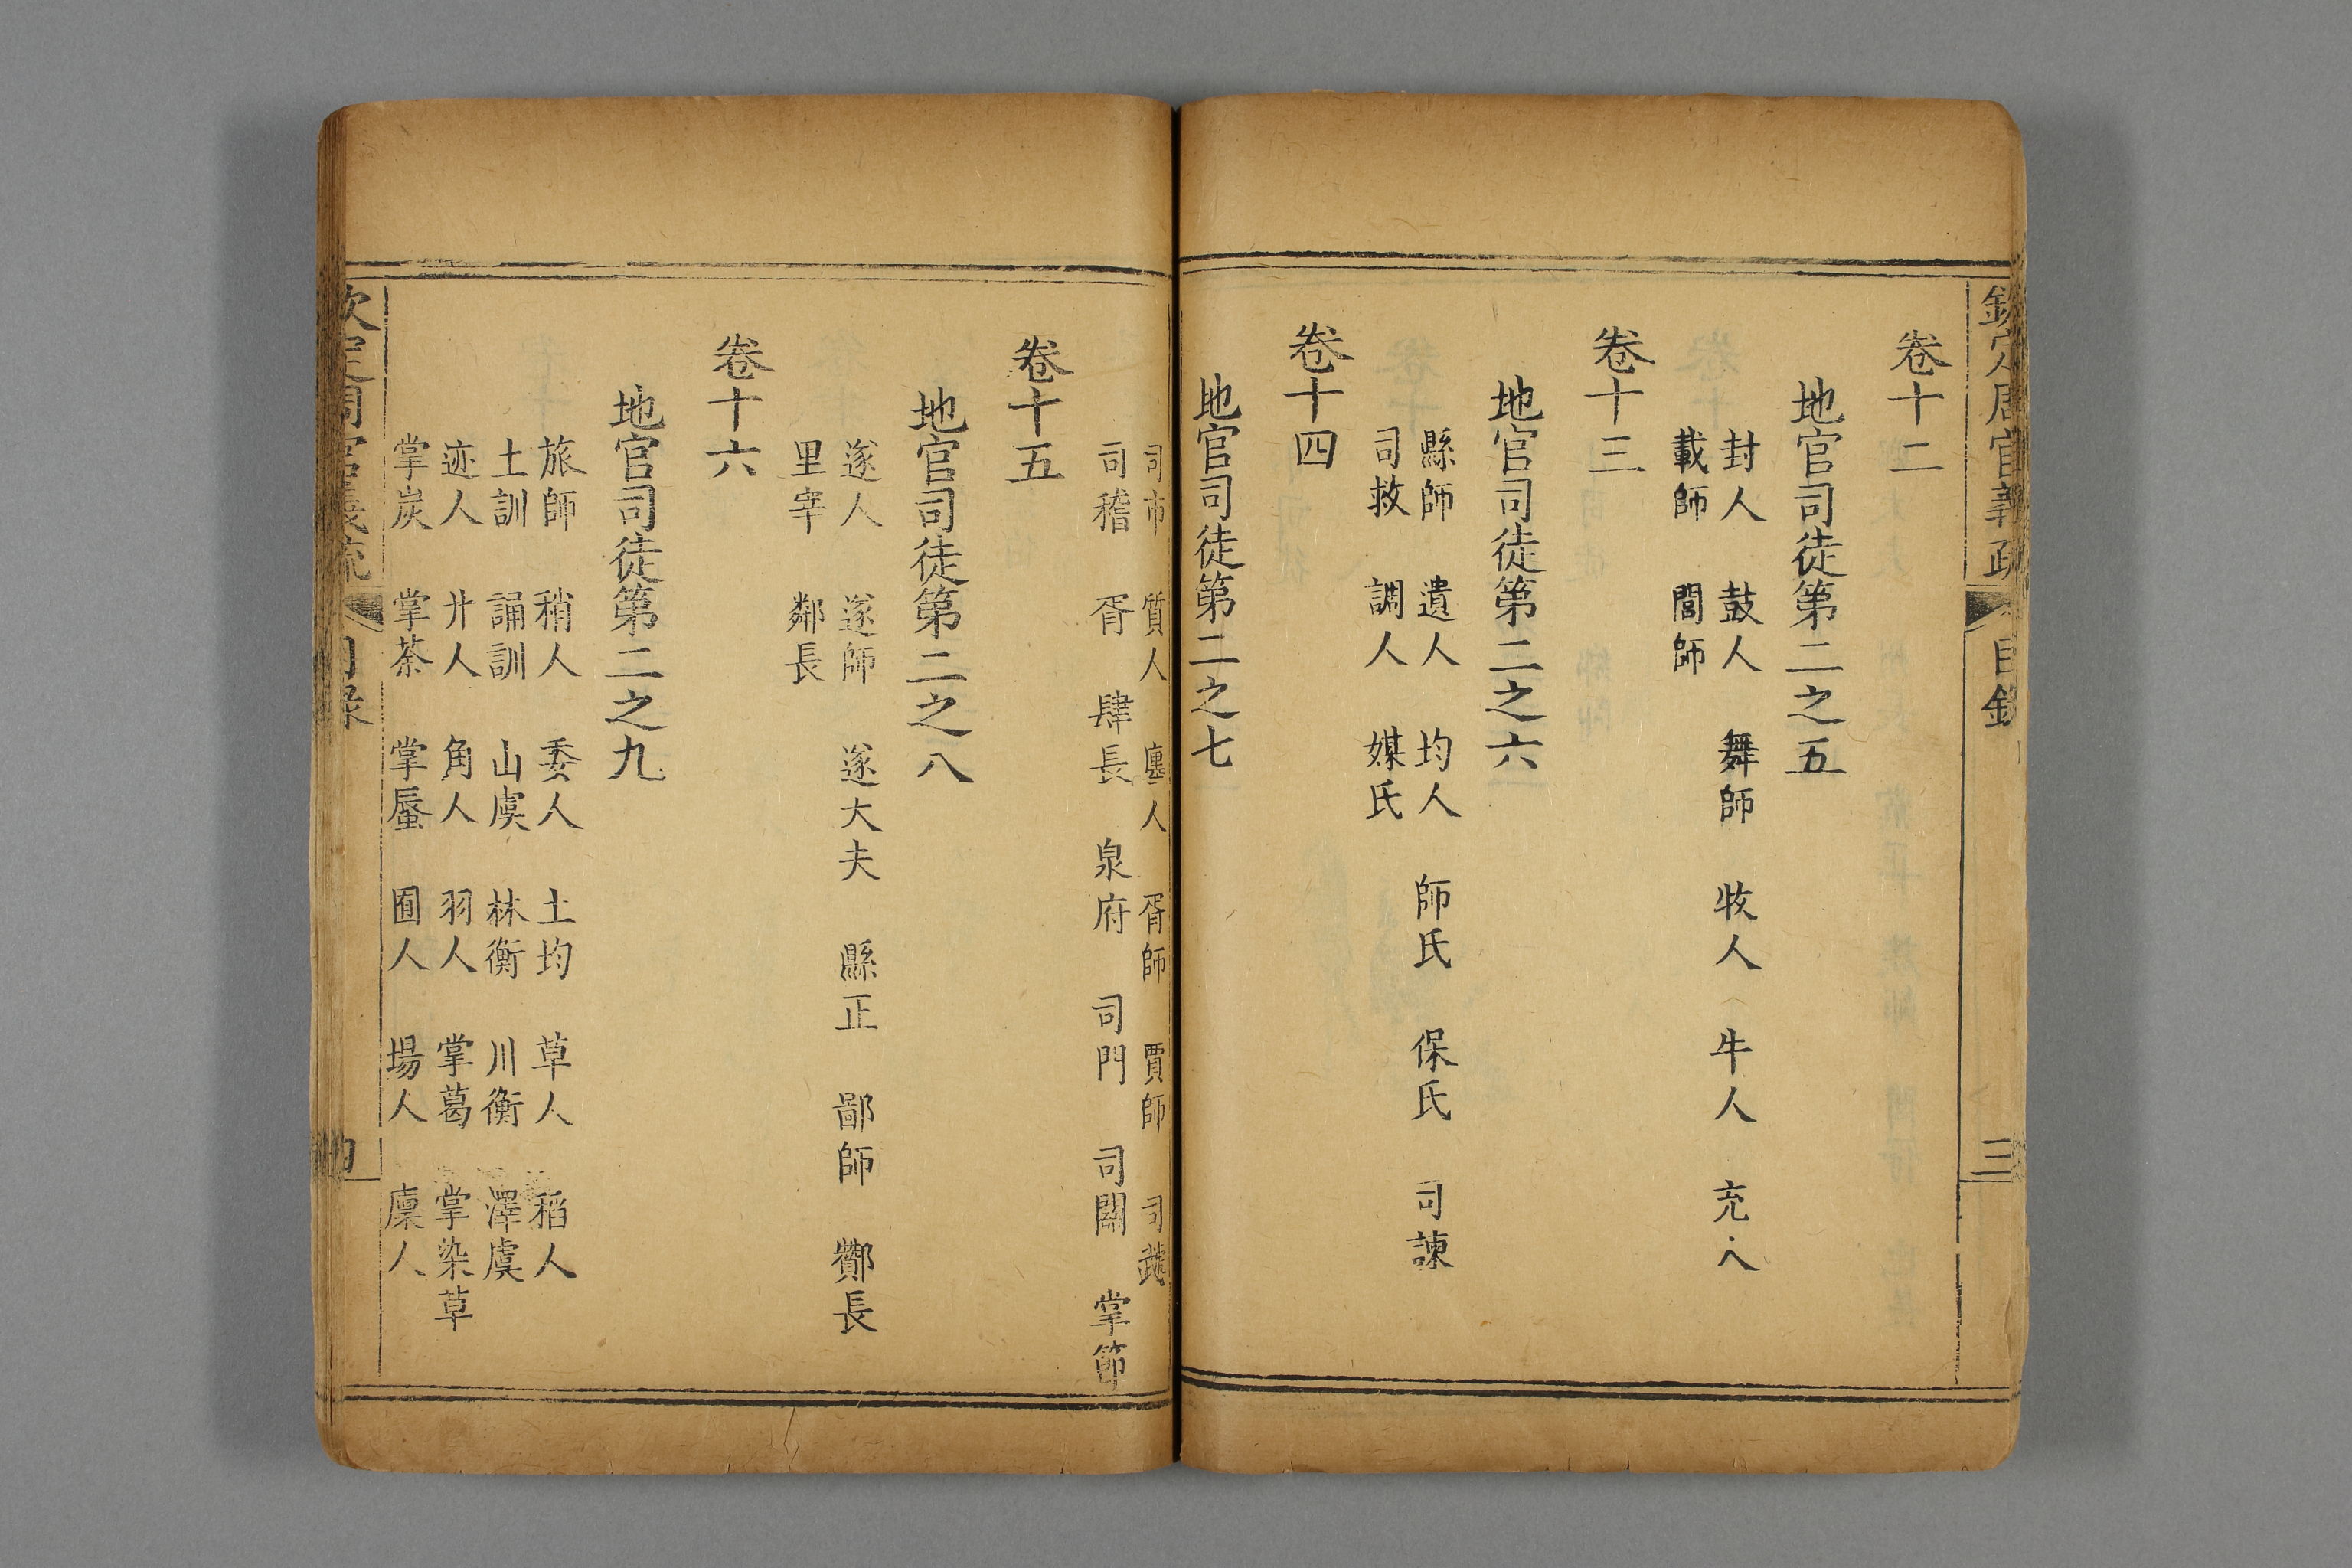 欽定周官義疏 目錄 三
卷十二
地官司徒第二之五
封人 鼓人 舞師 牧人 牛人 充人
載師 閭師
卷十三
地官司徒第二之六
縣師 遺人 均人 師氏 保氏 司諫
司救 調人 媒氏
卷十四
地官司徒第二之七
司市 質人 廛人 胥師 賈師 司虣
司稽 胥 肆長 泉府 司門 司關 掌節
卷十五
地官司徒第二之八
遂人 遂師 遂大夫 縣正 鄙師 酇長
里宰 鄰長
卷十六
地官司徒第二之九
旅師 稍人 委人 土均 草人 稻人
土訓 誦訓 山虞 林衡 川衡 澤虞
迹人 廾人 角人 羽人 掌葛 掌染草
掌炭 掌荼 掌蜃 囿人 場人 廩人
欽定周官義疏 目錄 四